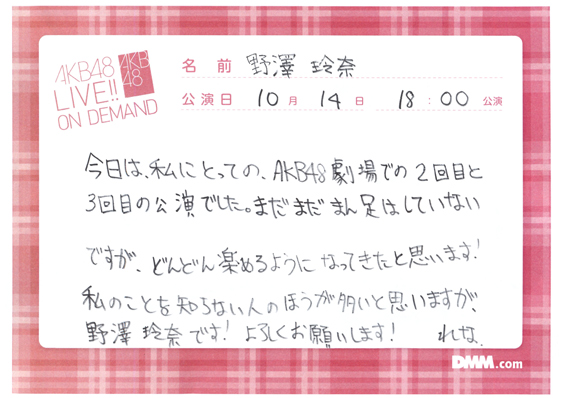 AKB48
LIVE!!
ON DEMAND
AKB
48
名前 野澤 玲奈
公演日 10月 14日 18:00 公演
今日は、私にとっての、AKB48劇場での2回目と
3回目の公演でした。まだまだまん足はしていない
ですが、どんどん楽めるようになってきたと思います!
私のことを知らない人のほうが多いと思いますが、
野澤 玲奈です! よろしくお願いします! れな.
DMM.com